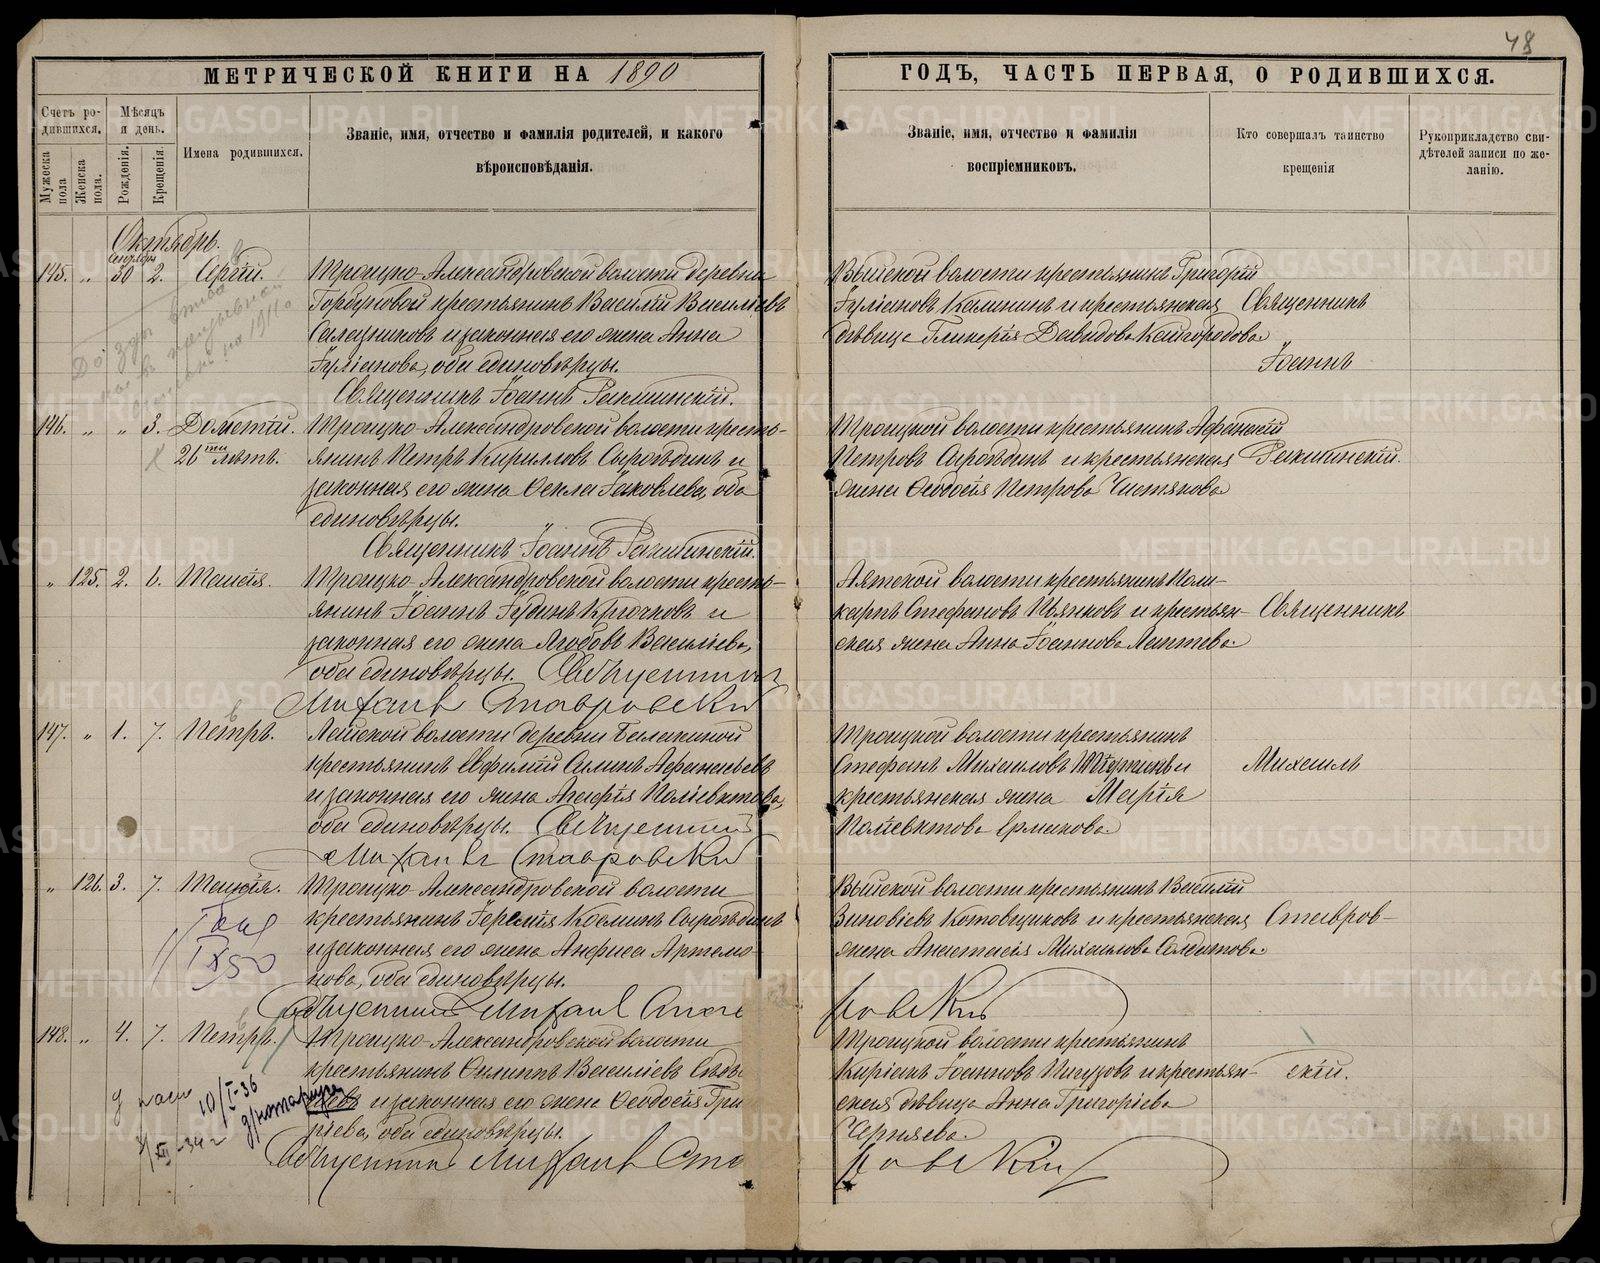 48
МЕТРИЧЕСКОЙ КНИГИ НА 1890
ГОДЪ, ЧАСТЬ ПЕРВАЯ, О РОДИВШИХСЯ.
Счетъ ро-
дившихся.
Мужеска пола
Женска пола.
Мѣсяцъ
и день.
Рожденія.
Крещенія.
Имена родившихся.
Званіе, имя, отчество и фамилія родителей, и какого
вѣроисповѣданія.
Званіе, имя, отчество и фамилія
воспріемниковъ.
Кто совершалъ таинство
крещенія
Рукоприкладство сви-
дѣтелей записи по же-
ланію.
Октябрь.
145. „ 30 2. Сергій.
Троицко-Александровской волости деревни
Горбуновой крестьянинъ Василій Васильевъ
и законная его жена Анна
Іуліанова, оба единовѣрцы.
Священникъ Іоаннъ
Выйской волости крестьянинъ Григорій
Іуліановъ Калининъ и крестьянская
дѣвица Гликерія Давидова Кайгородова
Священникъ
Іоаннъ
146. „ „ 3. Дометій.
Троицко-Александровской волости кресть-
янинъ Петръ Кирилловъ Сыроѣдинъ и
законная его жена Ѳекла Іаковлева, оба
единовѣрцы.
Священникъ Іоаннъ
Троицкой волости крестьянинъ Афанасій
Петровъ Сыроѣдинъ и крестьянская
жена Ѳеодосія Петрова Чистякова
„ 125. 2. 6. Таисія.
Троицко-Александровской волости кресть-
янинъ Іоаннъ Іудинъ Крючковъ и
законная его жена Любовь Васильева,
оба единовѣрцы. Священникъ
Михаилъ Ставровскій
Аятской волости крестьянинъ Поли-
карпъ Стефановъ Пьянковъ и крестьян-
ская жена Анна Іоаннова Лаптева
Священникъ
147. „ 1. 7. Петръ.
Лайской волости деревни Балакиной
крестьянинъ Евфимій Силинъ Афанасьевъ
и законная его жена Агафія Поліевктова,
оба единовѣрцы. Священникъ
Михаилъ Ставровскій
Троицкой волости крестьянинъ
Стефанъ Михаиловъ
крестьянская жена Марія
Поліевктова Ермакова
Михаилъ
„ 126. 3. 7. Таисія.
Троицко-Александровской волости
крестьянинъ Іеремія Косминъ Сыроѣдинъ
и законная его жена Анфиса Артемо-
нова, оба единовѣрцы.
Священникъ Михаилъ Став
ровскій
Выйской волости крестьянинъ Василій
Зиновіевъ Котовщиковъ и крестьянская
жена Анастасія Михаилова Солдатова
Ставров-
148. „ 4. 7. Петръ.
Троицко-Александровской волости
крестьянинъ Филиппъ Васильевъ
и законная его жена Ѳеодосія Гри
ріева, оба единовѣрцы.
Священникъ Михаилъ Ста
ровскій
Троицкой волости крестьянинъ
Киріакъ Іоанновъ Пигузовъ и крестьян-
ская дѣвица Анна Григоріева
Черняева
скій.
10/I-36
METRIKI.GASO-URAL.RU